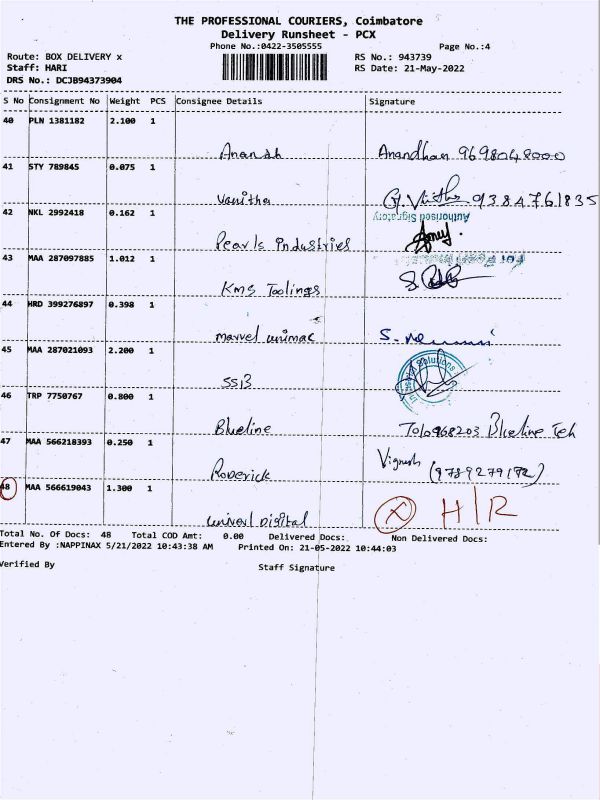 THE PROFESSIONAL COURIERS, Coimbatore
Delivery Runsheet - PCX
Phone No.:0422-3505555
Page No.:4
Route: BOX DELIVERY x
RS No.: 943739
Staff: HARI
RS Date: 21-May-2022
DRS No.: DCJB94373904
S No Consignment No Weight PCS Consignee Details Signature
40 PLN 1381182 2.100 1
Anandh Anandhan 9698048000
41 STY 789845 0.075 1
Vanitha 9384761835
42 NKL 2992418 0.162 1
Authorised Signatory
Pearls Industries
43 MAA 287097885 1.012 1
KMS Toolings
44 HRD 399276897 0.398 1
marvel unimac
45 MAA 287021093 2.200 1
SSB
Solutions
46 TRP 7750767 0.800 1
Blueline Blueline Teh
47 MAA 566218393 0.250 1
Vignesh
Roverick (9789279192)
48 MAA 566619043 1.300 1
X H/R
Digital
Total No. Of Docs: 48 Total COD Amt: 0.00 Delivered Docs: Non Delivered Docs:
Entered By :NAPPINAX 5/21/2022 10:43:38 AM Printed On: 21-05-2022 10:44:03
Verified By
Staff Signature